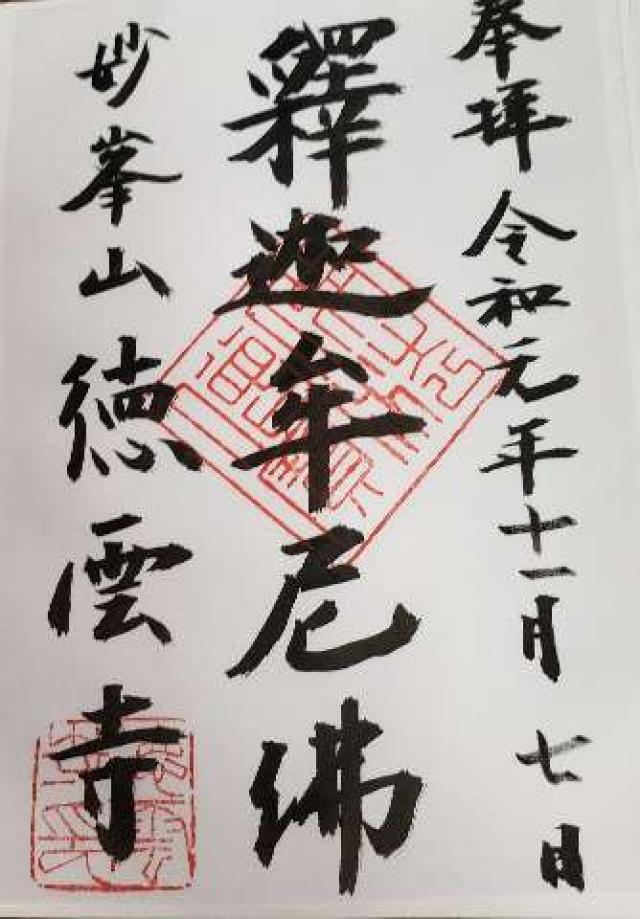 奉拝 令和元年十一月七日
釋迦牟尼佛
妙峯山 徳雲寺